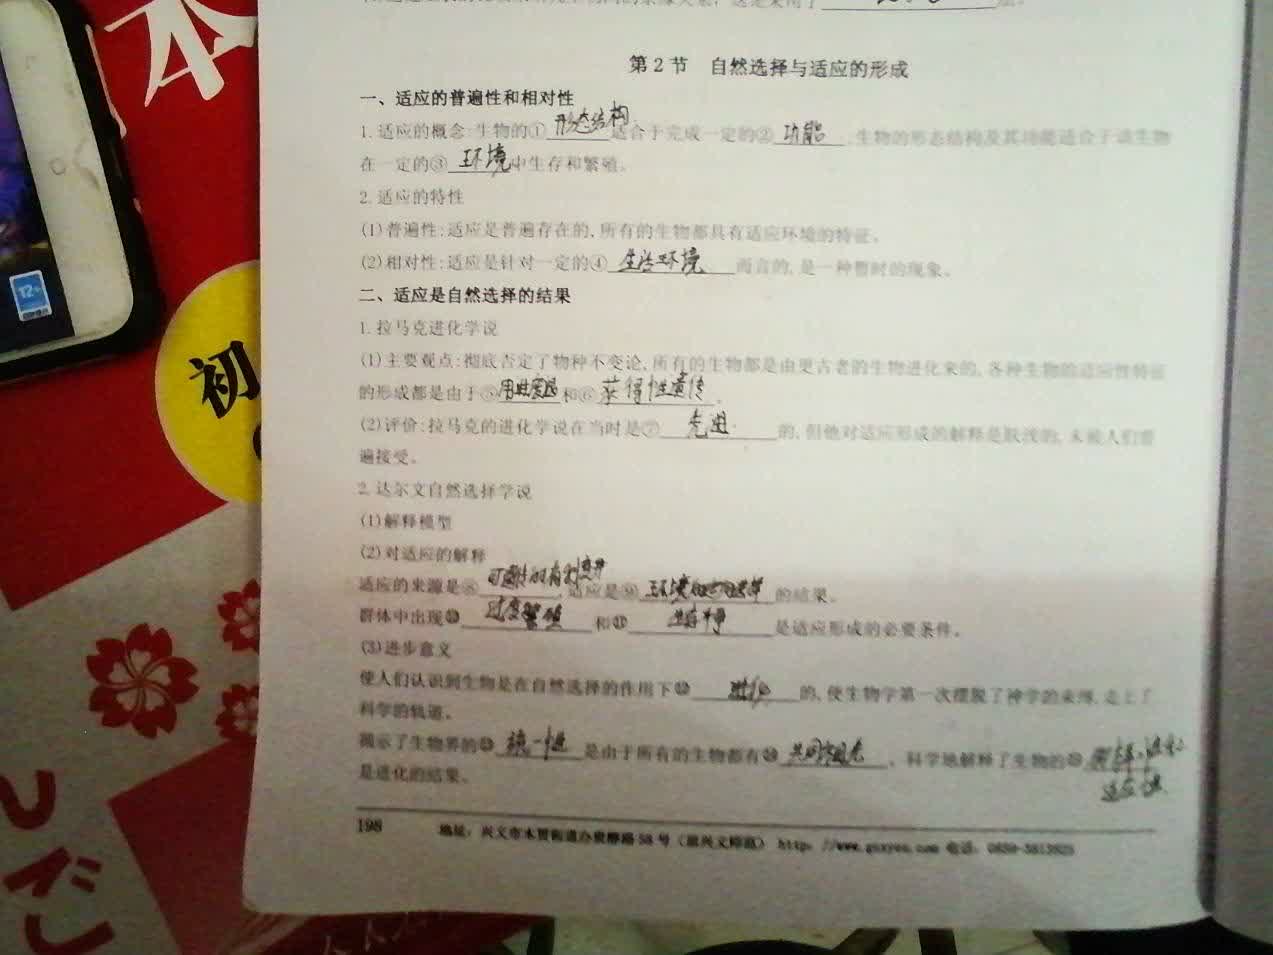 本
12+
初
第2节 自然选择与适应的形成
一、适应的普遍性和相对性
1.适应的概念:生物的①形态结构适合于完成一定的②功能,生物的形态结构及其功能适合于该生物
在一定的③环境中生存和繁殖。
2.适应的特性
(1)普遍性:适应是普遍存在的,所有的生物都具有适应环境的特征。
(2)相对性:适应是针对一定的④生活环境而言的,是一种暂时的现象。
二、适应是自然选择的结果
1.拉马克进化学说
(1)主要观点:彻底否定了物种不变论,所有的生物都是由更古老的生物进化来的,各种生物的适应性特征
的形成都是由于⑤用进废退和⑥获得性遗传。
(2)评价:拉马克的进化学说在当时是⑦先进的,但他对适应形成的解释是肤浅的,未被人们普
遍接受。
2.达尔文自然选择学说
(1)解释模型
(2)对适应的解释
适应的来源是⑧可遗传的有利变异,适应是⑨环境的定向选择的结果。
群体中出现⑩过度繁殖和⑪生存斗争是适应形成的必要条件。
(3)进步意义
使人们认识到生物是在自然选择的作用下⑫进化的,使生物学第一次摆脱了神学的束缚,走上了
科学的轨道。
揭示了生物界的⑬统一性是由于所有的生物都有⑭共同祖先,科学地解释了生物的⑮多样性和
适应性
是进化的结果。
198 地址:兴义市木贾街道办 58号